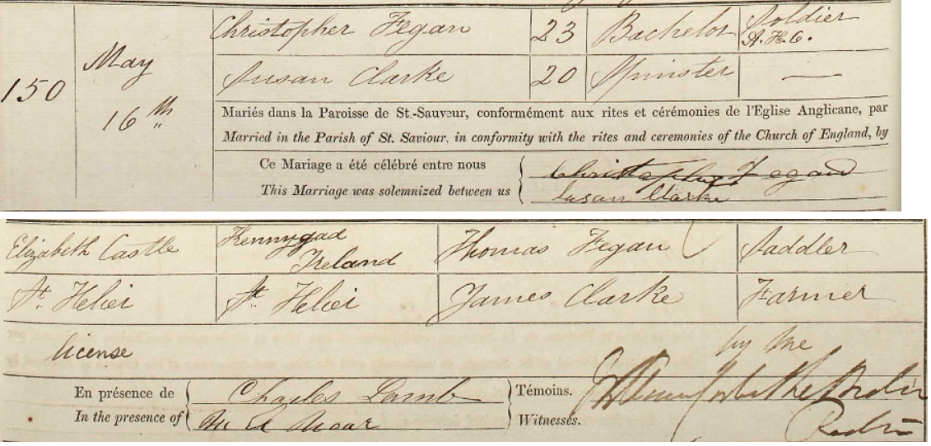 150 May 16th
Christopher Fegan 23 Bachelor Soldier A.H.C.
Susan Clarke 20 Spinster —
Mariés dans la Paroisse de St.-Sauveur, conformément aux rites et cérémonies de l'Eglise Anglicane, par
Married in the Parish of St. Saviour, in conformity with the rites and ceremonies of the Church of England, by
Ce Mariage a été célébré entre nous
This Marriage was solemnized between us
Christopher Fegan
Susan Clarke
Elizabeth Castle Kennygad Ireland Thomas Fegan Saddler
St. Helier St. Helier James Clarke Farmer
license by me
En présence de Charles Lamb Témoins.
In the presence of Witnesses.